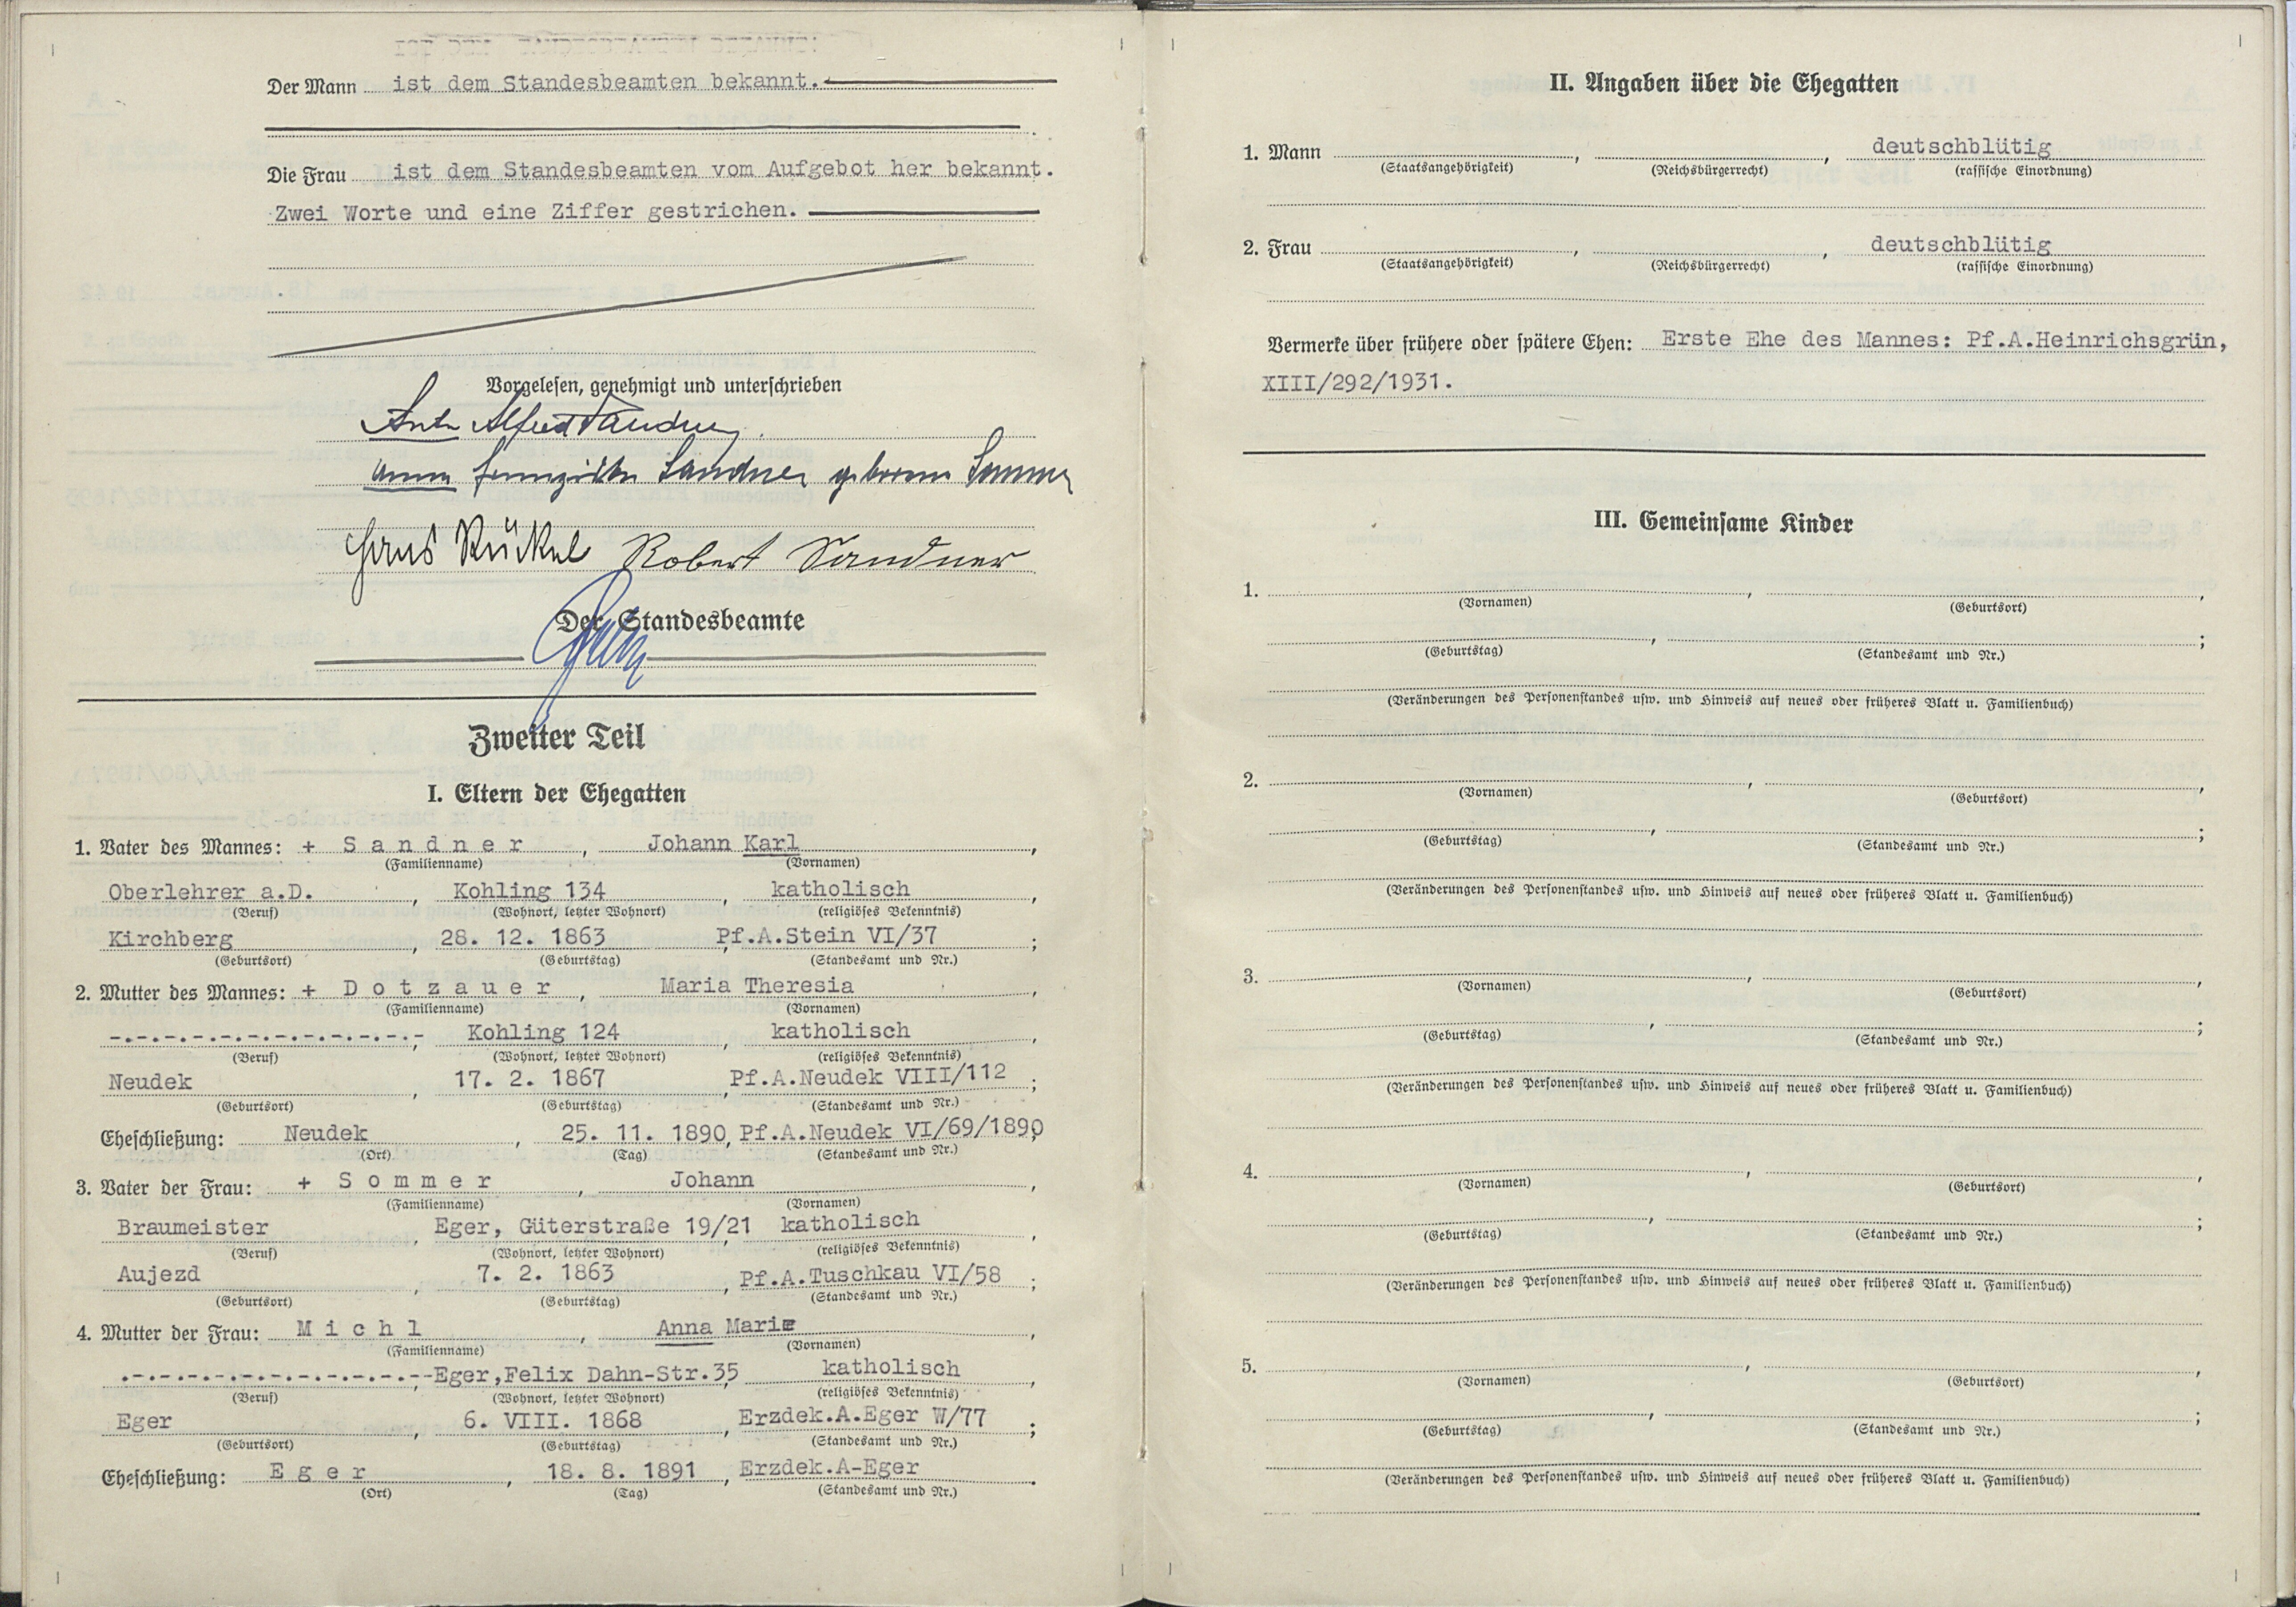 Der Mann ist dem Standesbeamten bekannt.
Die Frau ist dem Standesbeamten vom Aufgebot her bekannt.
Zwei Worte und eine Ziffer gestrichen.
Vorgelesen, genehmigt und unterschrieben
Anton Alfred Sandner
Anna Franziska Sandner geborene Sommer
Hans Rückl Robert Sandner
Der Standesbeamte
Zweiter Teil
I. Eltern der Ehegatten
1. Vater des Mannes: + S a n d n e r , Johann Karl ,
(Familienname) (Vornamen)
Oberlehrer a.D. , Kohling 134 , katholisch ,
(Beruf) (Wohnort, letzter Wohnort) (religiöses Bekenntnis)
Kirchberg , 28. 12. 1863 , Pf.A.Stein VI/37 ;
(Geburtsort) (Geburtstag) (Standesamt und Nr.)
2. Mutter des Mannes: + D o t z a u e r , Maria Theresia ,
(Familienname) (Vornamen)
-.-.-.-.-.-.-.-.-.-.-.- , Kohling 124 , katholisch ,
(Beruf) (Wohnort, letzter Wohnort) (religiöses Bekenntnis)
Neudek , 17. 2. 1867 , Pf.A.Neudek VIII/112 ;
(Geburtsort) (Geburtstag) (Standesamt und Nr.)
Eheschließung: Neudek , 25. 11. 1890, Pf.A.Neudek VI/69/1890 ;
(Ort) (Tag) (Standesamt und Nr.)
3. Vater der Frau: + S o m m e r , Johann ,
(Familienname) (Vornamen)
Braumeister , Eger, Güterstraße 19/21 , katholisch ,
(Beruf) (Wohnort, letzter Wohnort) (religiöses Bekenntnis)
Aujezd , 7. 2. 1863 , Pf.A.Tuschkau VI/58 ;
(Geburtsort) (Geburtstag) (Standesamt und Nr.)
4. Mutter der Frau: M i c h l , Anna Marie ,
(Familienname) (Vornamen)
.-.-.-.-.-.-.-.-.-.-.-- , Eger,Felix Dahn-Str.35 , katholisch ,
(Beruf) (Wohnort, letzter Wohnort) (religiöses Bekenntnis)
Eger , 6. VIII. 1868 , Erzdek.A.Eger W/77 ;
(Geburtsort) (Geburtstag) (Standesamt und Nr.)
Eheschließung: E g e r , 18. 8. 1891 , Erzdek.A-Eger .
(Ort) (Tag) (Standesamt und Nr.)
II. Angaben über die Ehegatten
1. Mann , , deutschblütig
(Staatsangehörigkeit) (Reichsbürgerrecht) (rassische Einordnung)
2. Frau , , deutschblütig
(Staatsangehörigkeit) (Reichsbürgerrecht) (rassische Einordnung)
Vermerke über frühere oder spätere Ehen: Erste Ehe des Mannes: Pf.A.Heinrichsgrün,
XIII/292/1931.
III. Gemeinsame Kinder
1. , ,
(Vornamen) (Geburtsort)
, ;
(Geburtstag) (Standesamt und Nr.)
(Veränderungen des Personenstandes usw. und Hinweis auf neues oder früheres Blatt u. Familienbuch)
2. , ,
(Vornamen) (Geburtsort)
, ;
(Geburtstag) (Standesamt und Nr.)
(Veränderungen des Personenstandes usw. und Hinweis auf neues oder früheres Blatt u. Familienbuch)
3. , ,
(Vornamen) (Geburtsort)
, ;
(Geburtstag) (Standesamt und Nr.)
(Veränderungen des Personenstandes usw. und Hinweis auf neues oder früheres Blatt u. Familienbuch)
4. , ,
(Vornamen) (Geburtsort)
, ;
(Geburtstag) (Standesamt und Nr.)
(Veränderungen des Personenstandes usw. und Hinweis auf neues oder früheres Blatt u. Familienbuch)
5. , ,
(Vornamen) (Geburtsort)
, ;
(Geburtstag) (Standesamt und Nr.)
(Veränderungen des Personenstandes usw. und Hinweis auf neues oder früheres Blatt u. Familienbuch)